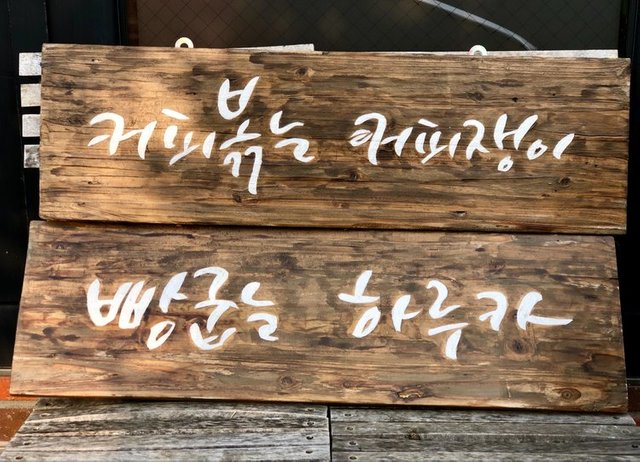 커피볶는 커피쟁이
빵굽는 하루카